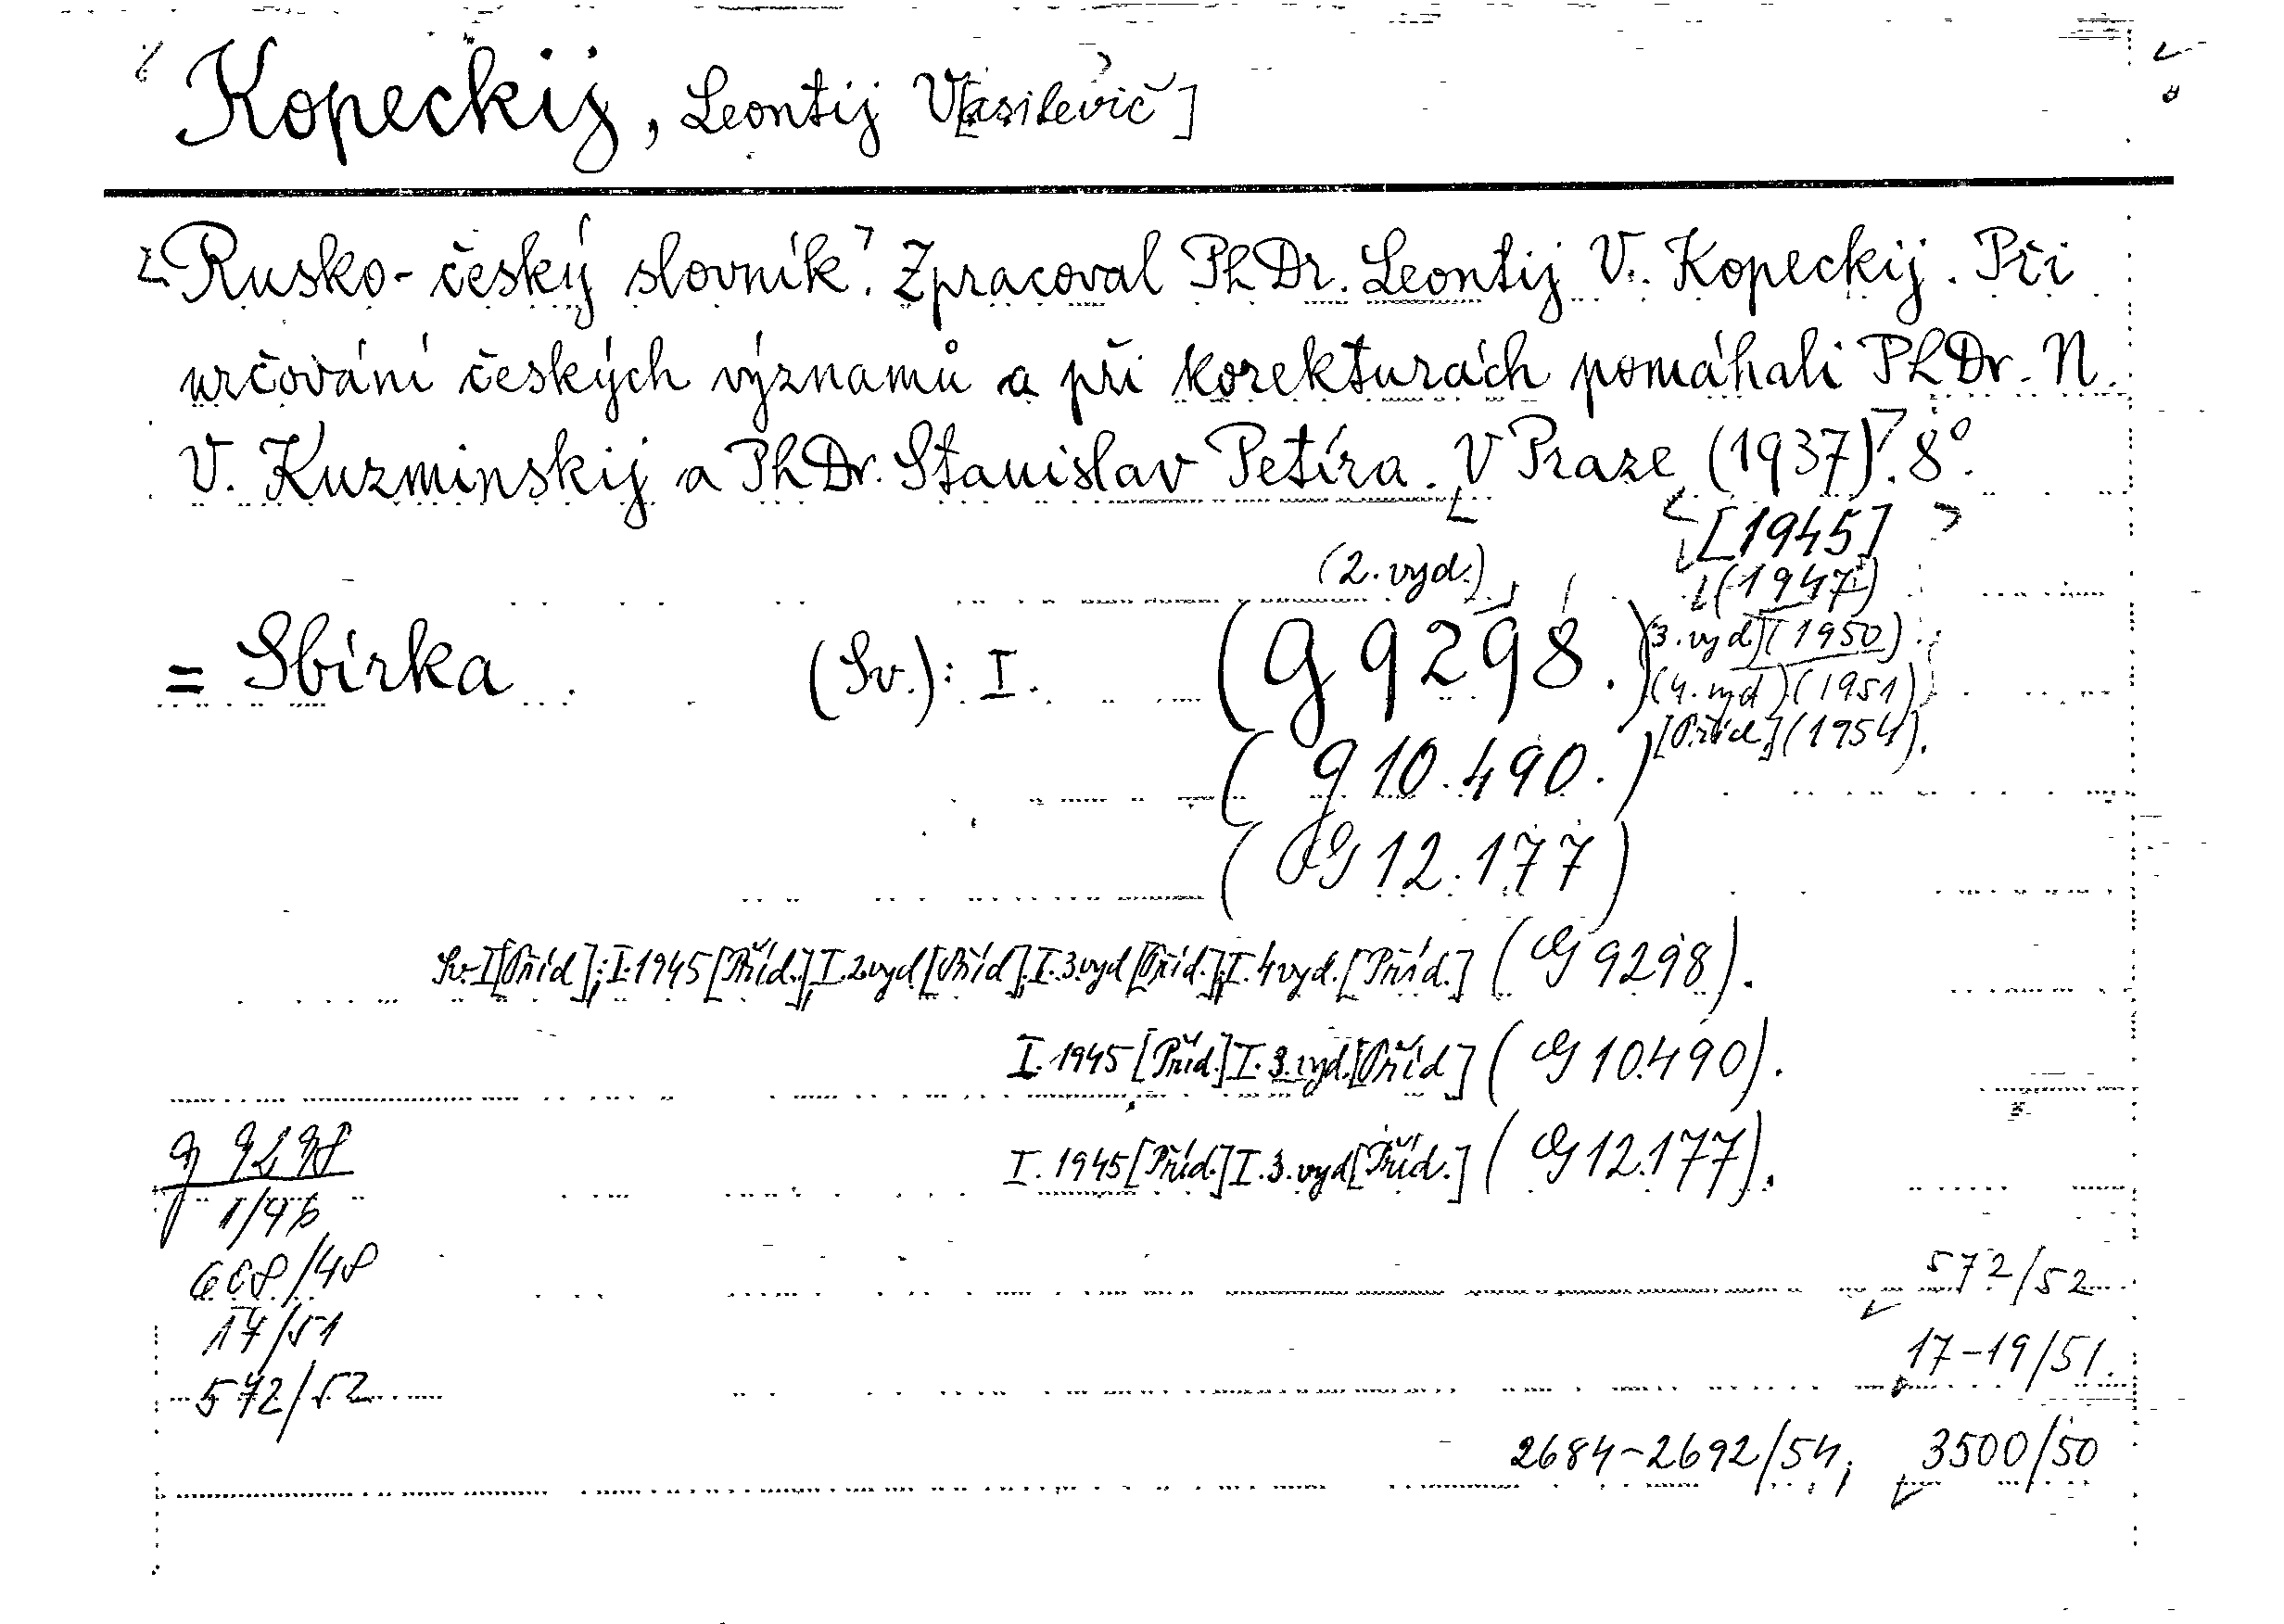 Kopeckij, Leontij V[asilevič]
Rusko-český slovník. Zpracoval PhDr. Leontij V. Kopeckij. Při
určování českých významů a při korekturách pomáhali PhDr. N.
V. Kuzminskij a PhDr. Stanislav Petíra. V Praze (1937). 8°.
[1945]
(2. vyd.) (1947)
(3. vyd.) (1950)
= Sbírka (Sv.): I. (G 9298.)
(4. vyd) (1951)
[Příd.] (1954).
(G 10.490.)
(G 12.177)
Sv. I [Příd]; I. 1945 [Příd.], I. 2. vyd [Příd]; I. 3. vyd [Příd.]; I. 4 vyd. [Příd.] (G 9298).
I. 1945 [Příd.] I. 3. vyd. [Příd] (G 10.490).
I. 1945 [Příd.] I. 3. vyd [Příd.] (G 12.177).
G 9298
1/46
608/48
17/51
572/52
572/52
17-19/51.
2684-2692/54; 3500/50